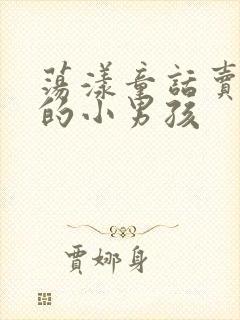 蕩漾童話賣
的小男孩
賈娜身